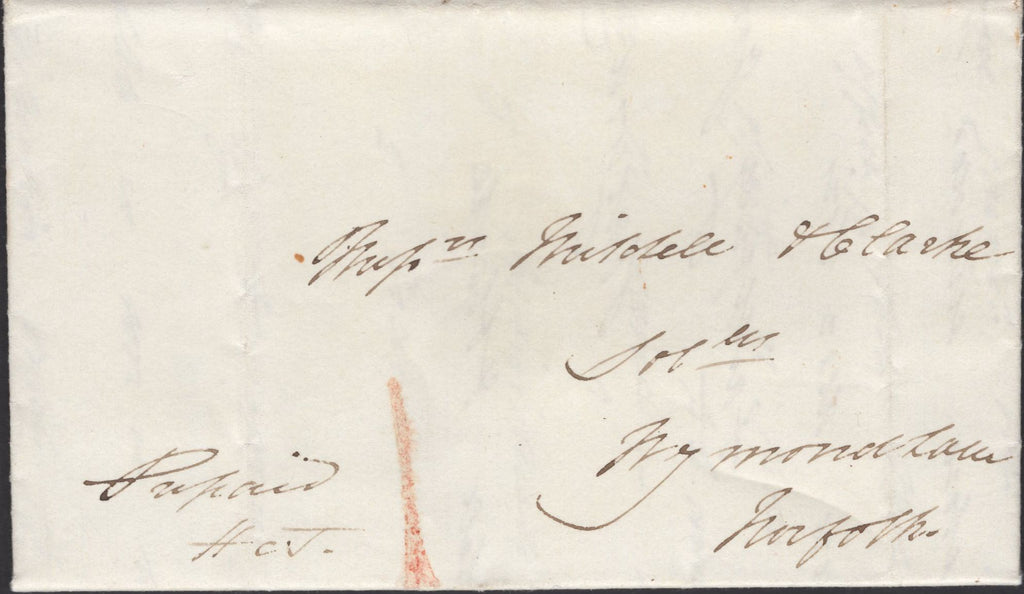 Messrs Mitchell & Clarke
Solrs
Wymondham
Norfolk.
Prepaid
H.C.J.